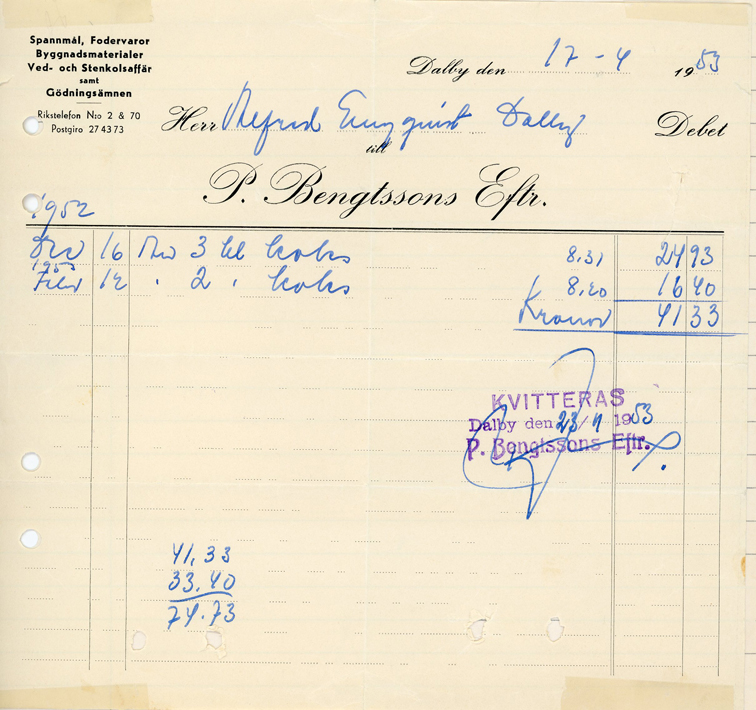 Spannmål, Fodervaror
Byggnadsmaterialer
Ved- och Stenkolsaffär
samt
Gödningsämnen
Rikstelefon N:o 2 & 70
Postgiro 27 43 73
Dalby den 17 - 4 1953
Herr Alfred Dalby Debet
till
P. Bengtssons Eftr.
1952
Dec 16 3 hl koks 8,31 24 93
1953
Febr 12 " 2 " koks 8,20 16 40
Kronor 41 33
KVITTERAS
Dalby den 23/4 1953
P. Bengtssons Eftr.
41,33
33,40
74.73